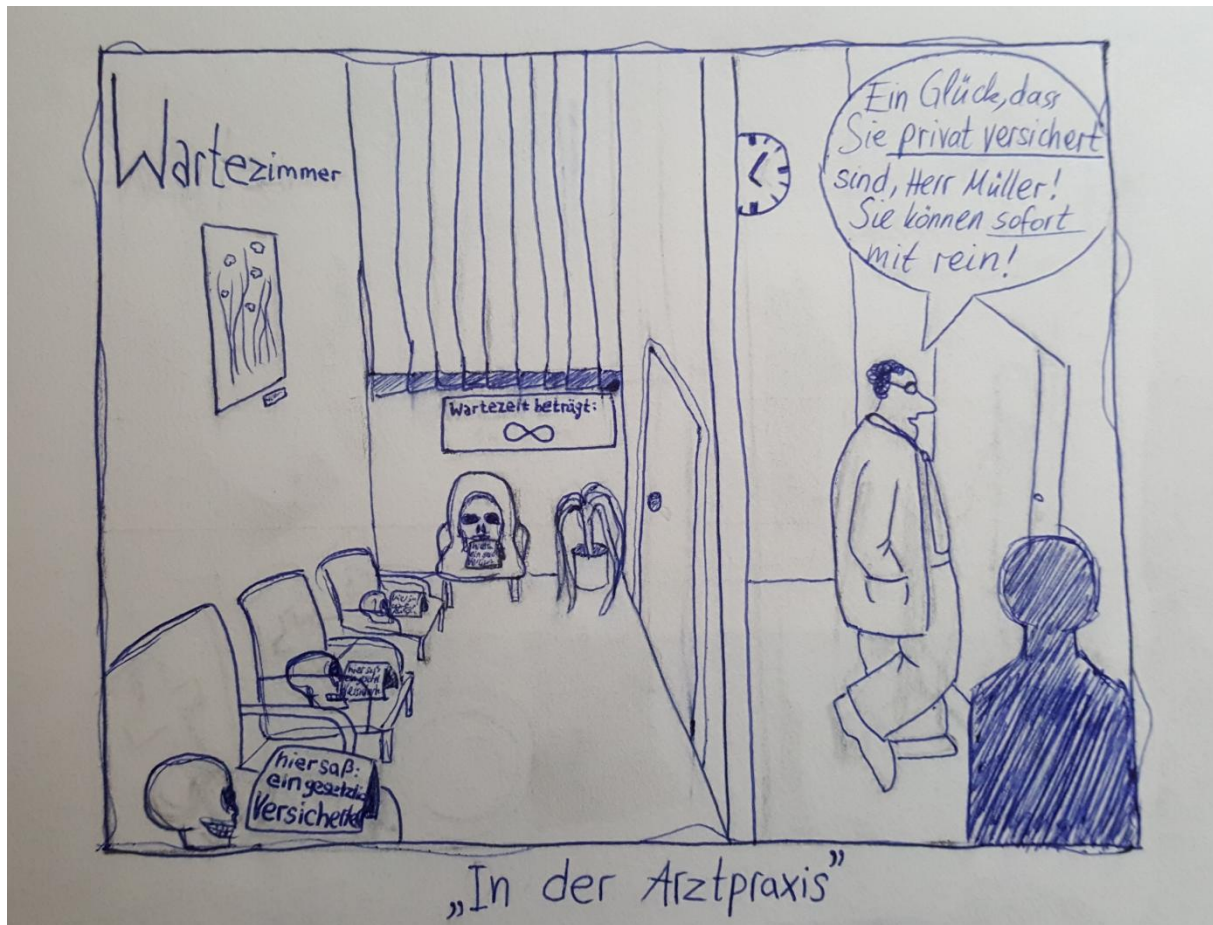 Wartezimmer
Ein Glück, dass
Sie privat versichert
sind, Herr Müller!
Sie können sofort
mit rein!
Wartezeit beträgt:
∞
hier saß
hier saß:
ein gesetzlich
Versicherter
„In der Arztpraxis”